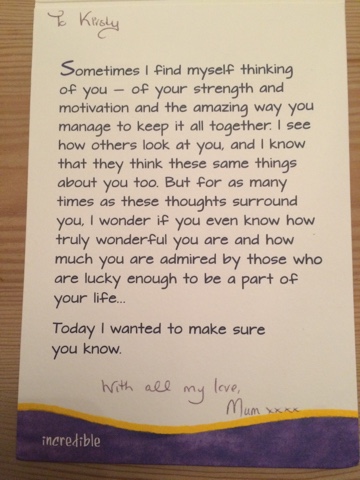 To Kirsty
Sometimes I find myself thinking
of you – of your strength and
motivation and the amazing way you
manage to keep it all together. I see
how others look at you, and I know
that they think these same things
about you too. But for as many
times as these thoughts surround
you, I wonder if you even know how
truly wonderful you are and how
much you are admired by those who
are lucky enough to be a part of
your life...
Today I wanted to make sure
you know.
With all my love,
Mum xxxx
incredible